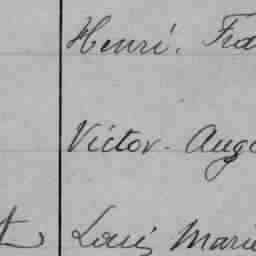 Henri. Fra
Victor - Aug
Louis Marie